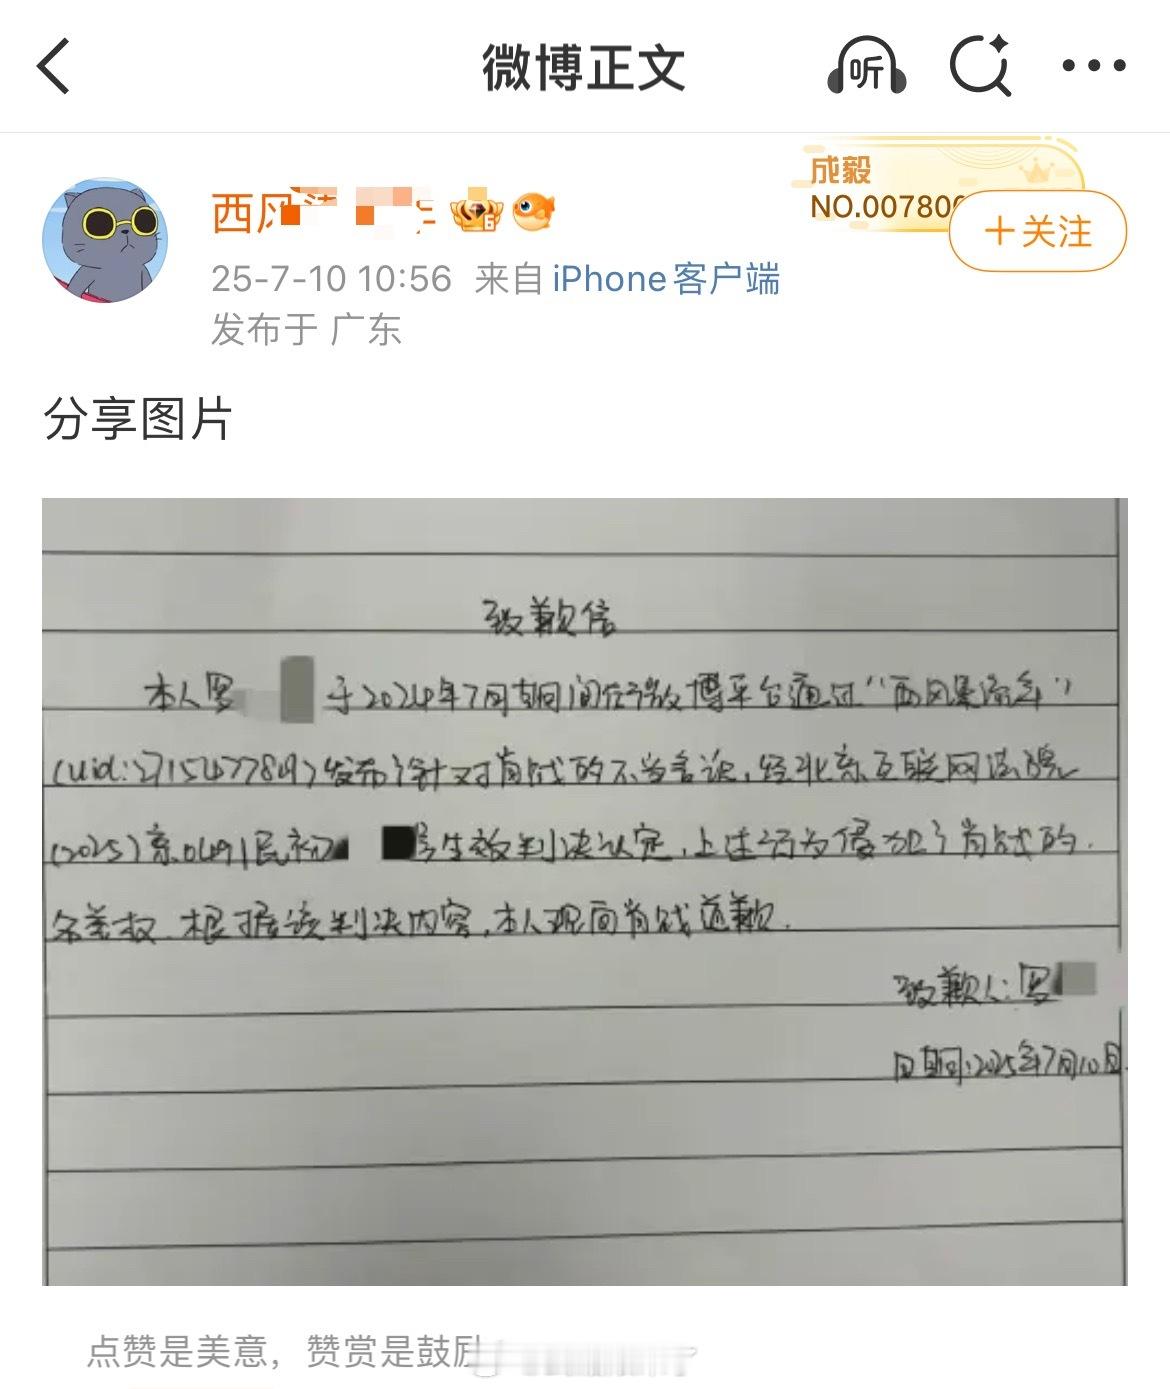 微博正文
听
成毅
NO.00780
西风
+关注
25-7-10 10:56 来自 iPhone客户端
发布于 广东
分享图片
致歉信
本人罗 于2024年7月期间在微博平台通过“西风 流年”
(uid: )发布了针对肖战的不当言论,经北京互联网法院
(2025)京0491民初 号生效判决认定,上述行为侵犯了肖战的
名誉权.根据该判决内容,本人现向肖战道歉.
致歉人:罗
日期:2025年7月10日.
点赞是美意,赞赏是鼓励